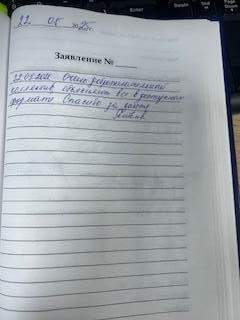 22 05 2025г.
Заявление № ____
22.05.2025 Очень доброжелательный
коллектив, объясняют все в доступном
формате Спасибо за работу